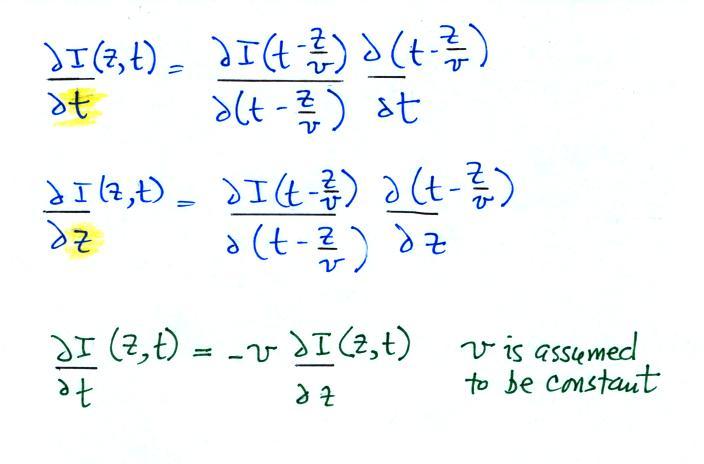 ∂I(z,t) = ∂I(t-z/v) ∂(t-z/v)
∂t ∂(t-z/v) ∂t
∂I(z,t) = ∂I(t-z/v) ∂(t-z/v)
∂z ∂(t-z/v) ∂z
∂I (z,t) = -v ∂I(z,t) v is assumed
∂t ∂z to be constant